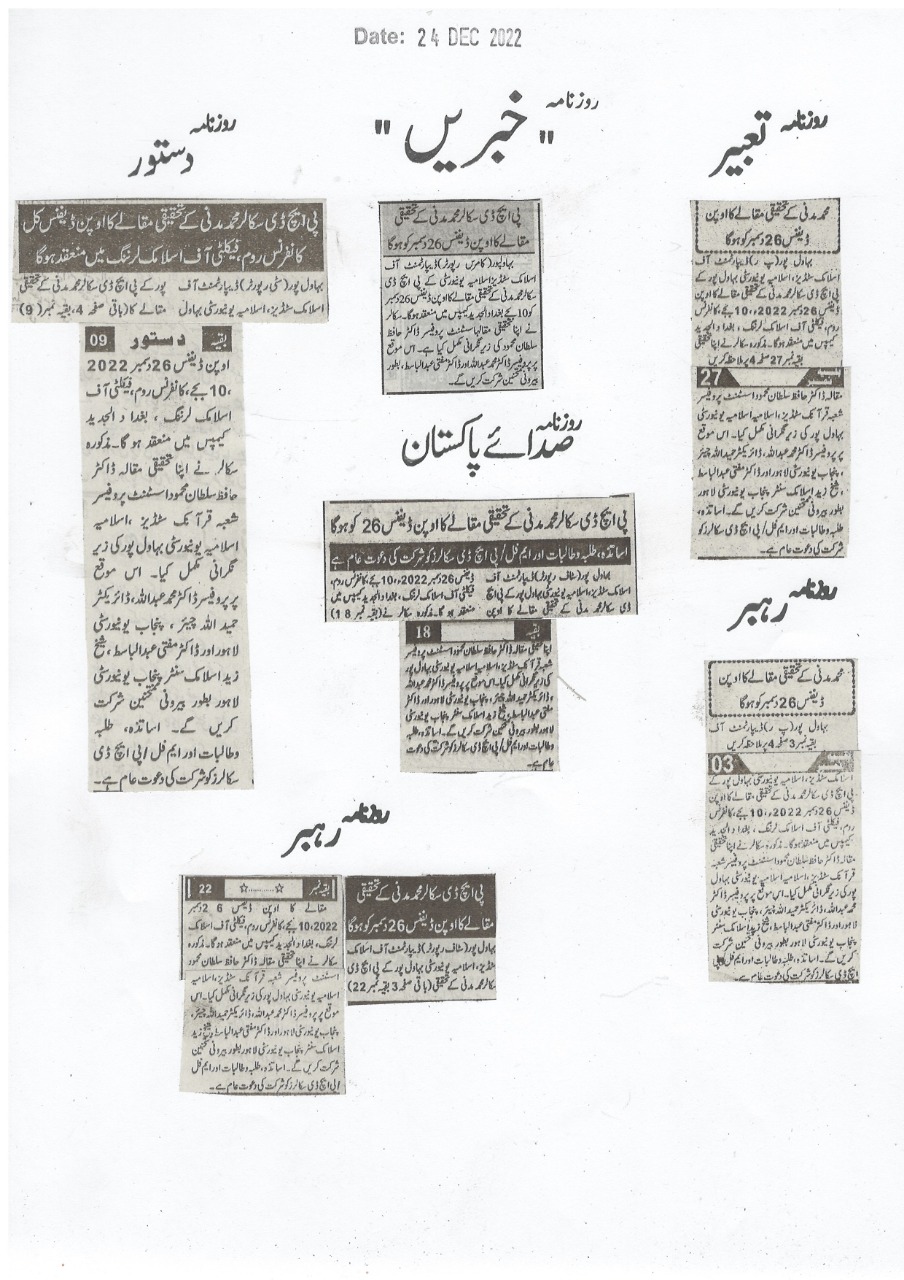 Date: 24 DEC 2022
روزنامہ تعبیر
محمد مدنی کے تحقیقی مقالے کا اوپن
ڈیفنس 26 دسمبر کو ہوگا
بہاول پور (پ ر) ڈیپارٹمنٹ آف
اسلامک سٹڈیز، اسلامیہ یونیورسٹی بہاول پور کے
پی ایچ ڈی سکالر محمد مدنی کے تحقیقی مقالے کا اوپن
ڈیفنس 26 دسمبر 2022ء، 10 بجے، کانفرنس
روم، فیکلٹی آف اسلامک لرننگ، بغداد الجدید
کیمپس میں منعقد ہوگا۔ مذکورہ سکالر نے اپنا تحقیقی
بقیہ نمبر 27 صفحہ 4 پر ملاحظہ کریں
27
مقالہ ڈاکٹر حافظ سلطان محمود اسسٹنٹ پروفیسر
شعبہ قرآنک سٹڈیز، اسلامیہ یونیورسٹی
بہاول پور کی زیر نگرانی مکمل کیا۔ اس موقع
پر پروفیسر ڈاکٹر محمد عبداللہ، ڈائریکٹر حمید اللہ چیئر
، پنجاب یونیورسٹی لاہور اور ڈاکٹر مفتی عبدالباسط
، شیخ زید اسلامک سنٹر پنجاب یونیورسٹی لاہور
بطور بیرونی ممتحنین شرکت کریں گے۔ اساتذہ،
طلبہ وطالبات اور ایم فل/ پی ایچ ڈی سکالرز کو
شرکت کی دعوت عام ہے۔
روزنامہ "خبریں"
پی ایچ ڈی سکالر محمد مدنی کے تحقیقی
مقالے کا اوپن ڈیفنس 26 دسمبر کو ہوگا
بہاولپور (کامرس رپورٹر) ڈیپارٹمنٹ آف
اسلامک سٹڈیز، اسلامیہ یونیورسٹی کے پی ایچ ڈی
سکالر محمد مدنی کے تحقیقی مقالے کا اوپن ڈیفنس 26 دسمبر
کو 10 بجے بغداد الجدید کیمپس میں منعقد ہوگا۔ سکالر
نے اپنا تحقیقی مقالہ اسسٹنٹ پروفیسر ڈاکٹر حافظ
سلطان محمود کی زیر نگرانی مکمل کیا ہے۔ اس موقع
پر پروفیسر ڈاکٹر محمد عبداللہ اور ڈاکٹر مفتی عبدالباسط، بطور
بیرونی ممتحنین شرکت کریں گے۔
روزنامہ دستور
پی ایچ ڈی سکالر محمد مدنی کے تحقیقی مقالے کا اوپن ڈیفنس کل
کانفرنس روم، فیکلٹی آف اسلامک لرننگ میں منعقد ہوگا
بہاول پور (سٹی رپورٹر) ڈیپارٹمنٹ آف
اسلامک سٹڈیز، اسلامیہ یونیورسٹی بہاول
پور کے پی ایچ ڈی سکالر محمد مدنی کے تحقیقی
مقالے کا (باقی صفحہ 4، بقیہ نمبر 9)
بقیہ دستور 09
اوپن ڈیفنس 26 دسمبر 2022
،10 بجے، کانفرنس روم، فیکلٹی آف
اسلامک لرننگ، بغداد الجدید
کیمپس میں منعقد ہوگا۔ مذکورہ
سکالر نے اپنا تحقیقی مقالہ ڈاکٹر
حافظ سلطان محمود اسسٹنٹ پروفیسر
شعبہ قرآنک سٹڈیز، اسلامیہ
یونیورسٹی بہاول پور کی زیر
نگرانی مکمل کیا۔ اس موقع
پر پروفیسر ڈاکٹر محمد عبداللہ، ڈائریکٹر
حمید اللہ چیئر، پنجاب یونیورسٹی
لاہور اور ڈاکٹر مفتی عبدالباسط، شیخ
زید اسلامک سنٹر پنجاب یونیورسٹی
لاہور بطور بیرونی ممتحنین شرکت
کریں گے۔ اساتذہ، طلبہ
وطالبات اور ایم فل/ پی ایچ ڈی
سکالرز کو شرکت کی دعوت عام ہے۔
روزنامہ صدائے پاکستان
پی ایچ ڈی سکالر محمد مدنی کے تحقیقی مقالے کا اوپن ڈیفنس 26 کو ہوگا
اساتذہ، طلبہ وطالبات اور ایم فل/ پی ایچ ڈی سکالرز کو شرکت کی دعوت عام ہے
بہاول پور (سٹاف رپورٹر) ڈیپارٹمنٹ آف
اسلامک سٹڈیز، اسلامیہ یونیورسٹی بہاول پور کے پی ایچ
ڈی سکالر محمد مدنی کے تحقیقی مقالے کا اوپن
ڈیفنس 26 دسمبر 2022ء، 10 بجے، کانفرنس روم،
فیکلٹی آف اسلامک لرننگ، بغداد الجدید کیمپس میں
منعقد ہوگا۔ مذکورہ سکالر نے (بقیہ نمبر 18)
بقیہ 18
اپنا تحقیقی مقالہ ڈاکٹر حافظ سلطان محمود اسسٹنٹ پروفیسر
شعبہ قرآنک سٹڈیز، اسلامیہ یونیورسٹی بہاول پور
کی زیر نگرانی مکمل کیا۔ اس موقع پر پروفیسر ڈاکٹر محمد عبداللہ
، ڈائریکٹر حمید اللہ چیئر، پنجاب یونیورسٹی لاہور اور ڈاکٹر
مفتی عبدالباسط، شیخ زید اسلامک سنٹر پنجاب یونیورسٹی
لاہور بطور بیرونی ممتحنین شرکت کریں گے۔ اساتذہ، طلبہ
وطالبات اور ایم فل/ پی ایچ ڈی سکالرز کو شرکت کی دعوت
عام ہے۔
روزنامہ رہبر
محمد مدنی کے تحقیقی مقالے کا اوپن
ڈیفنس 26 دسمبر کو ہوگا
بہاول پور (پ ر) ڈیپارٹمنٹ آف
بقیہ نمبر 3 صفحہ 4 پر ملاحظہ کریں
03
اسلامک سٹڈیز، اسلامیہ یونیورسٹی بہاول پور کے
پی ایچ ڈی سکالر محمد مدنی کے تحقیقی مقالے کا اوپن
ڈیفنس 26 دسمبر 2022ء، 10 بجے، کانفرنس
روم، فیکلٹی آف اسلامک لرننگ، بغداد الجدید
کیمپس میں منعقد ہوگا۔ مذکورہ سکالر نے اپنا تحقیقی
مقالہ ڈاکٹر حافظ سلطان محمود اسسٹنٹ پروفیسر شعبہ
قرآنک سٹڈیز، اسلامیہ یونیورسٹی بہاول
پور کی زیر نگرانی مکمل کیا۔ اس موقع پر پروفیسر ڈاکٹر
محمد عبداللہ، ڈائریکٹر حمید اللہ چیئر، پنجاب یونیورسٹی
لاہور اور ڈاکٹر مفتی عبدالباسط، شیخ زید اسلامک سنٹر
پنجاب یونیورسٹی لاہور بطور بیرونی ممتحنین شرکت
کریں گے۔ اساتذہ، طلبہ وطالبات اور ایم فل/ پی
ایچ ڈی سکالرز کو شرکت کی دعوت عام ہے۔
روزنامہ رہبر
پی ایچ ڈی سکالر محمد مدنی کے تحقیقی
مقالے کا اوپن ڈیفنس 26 دسمبر کو ہوگا
بہاول پور (سٹاف رپورٹر) ڈیپارٹمنٹ آف اسلامک
سٹڈیز، اسلامیہ یونیورسٹی بہاول پور کے پی ایچ ڈی
سکالر محمد مدنی کے تحقیقی (باقی صفحہ 3 بقیہ نمبر 22)
بقیہ نمبر ☆..........☆ 22
مقالے کا اوپن ڈیفنس 26 دسمبر
2022ء، 10 بجے، کانفرنس روم، فیکلٹی آف اسلامک
لرننگ، بغداد الجدید کیمپس میں منعقد ہوگا۔ مذکورہ
سکالر نے اپنا تحقیقی مقالہ ڈاکٹر حافظ سلطان محمود
اسسٹنٹ پروفیسر شعبہ قرآنک سٹڈیز، اسلامیہ
یونیورسٹی بہاول پور کی زیر نگرانی مکمل کیا۔ اس
موقع پر پروفیسر ڈاکٹر محمد عبداللہ، ڈائریکٹر حمید اللہ چیئر،
پنجاب یونیورسٹی لاہور اور ڈاکٹر مفتی عبدالباسط، شیخ زید
اسلامک سنٹر پنجاب یونیورسٹی لاہور بطور بیرونی ممتحنین
شرکت کریں گے۔ اساتذہ، طلبہ وطالبات اور ایم فل
/ پی ایچ ڈی سکالرز کو شرکت کی دعوت عام ہے۔